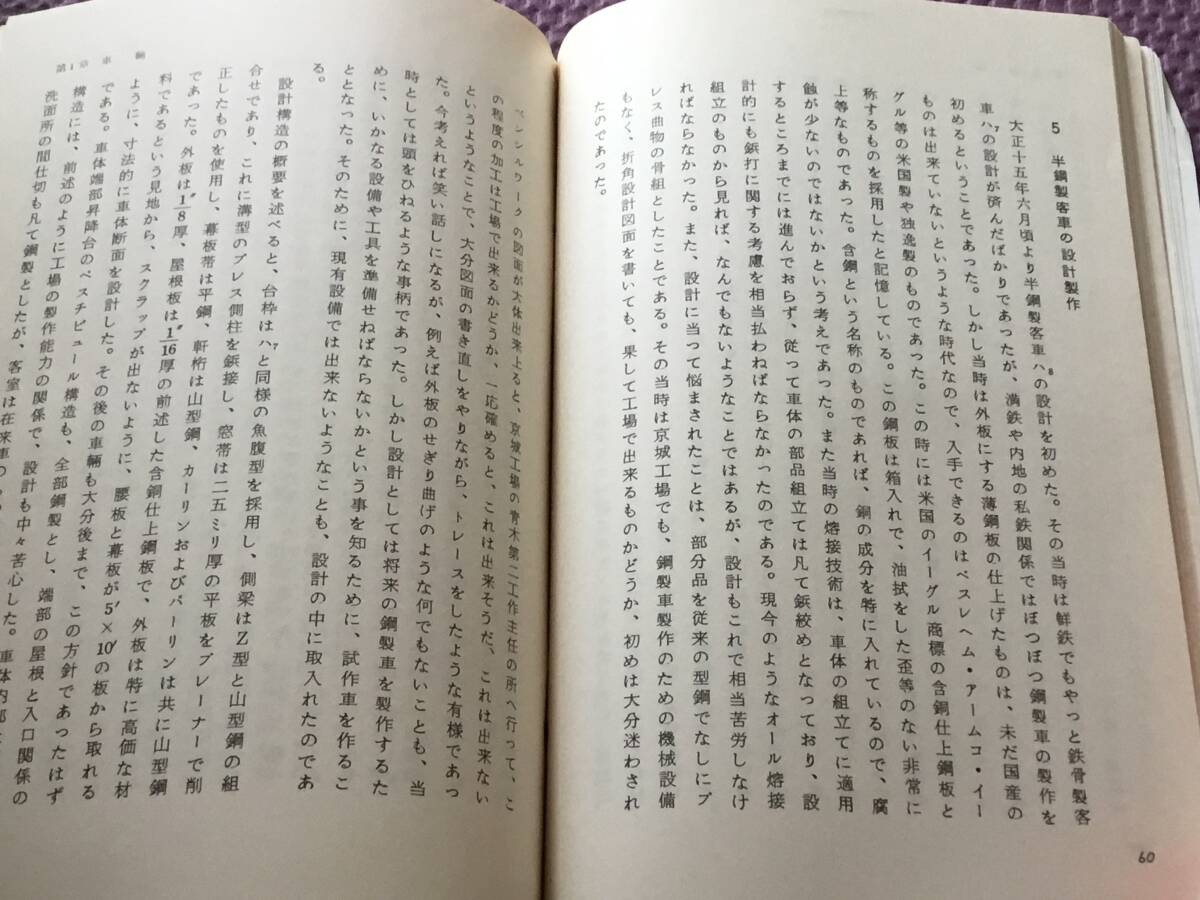 5 半鋼製客車の設計製作
大正十五年六月頃より半鋼製客車ハ8の設計を初めた。その当時は鮮鉄でもやっと鉄骨製客
車ハ7の設計が済んだばかりであったが、満鉄や内地の私鉄関係ではぼつぼつ鋼製車の製作を
初めるということであった。しかし当時は外板にする薄鋼板の仕上げたものは、未だ国産の
ものは出来ていないというような時代なので、入手できるのはベスレヘム・アームコ・イー
グル等の米国製や独逸製のものであった。この時には米国のイーグル商標の含銅仕上鋼板と
称するものを採用したと記憶している。この鋼板は箱入れで、油拭をした歪等のない非常に
上等なものであった。含銅という名称のものであれば、銅の成分を特に入れているので、腐
蝕が少ないのではないかという考えであった。また当時の熔接技術は、車体の組立てに適用
するところまでには進んでおらず、従って車体の部品組立ては凡て鋲絞めとなっており、設
計的にも鋲打に関する考慮を相当払わねばならなかったのである。現今のようなオール熔接
組立のものから見れば、なんでもないようなことではあるが、設計もこれで相当苦労しなけ
ればならなかった。また、設計に当って悩まされたことは、部分品を従来の型鋼でなしにプ
レス曲物の骨組としたことである。その当時は京城工場でも、鋼製車製作のための機械設備
もなく、折角設計図面を書いても、果して工場で出来るものかどうか、初めは大分迷わされ
たのであった。
60
ペンシルワークの図面が大体出来上ると、京城工場の青木第二工作主任の所へ行って、こ
の程度の加工は工場で出来るかどうか、一応確めると、これは出来そうだ、これは出来ない
というようなことで、大分図面の書き直しをやりながら、トレースをしたような有様であっ
た。今考えれば笑い話しになるが、例えば外板のせぎり曲げのような何でもないことも、当
時としては頭をひねるような事柄であった。しかし設計としては将来の鋼製車を製作するた
めに、いかなる設備や工具を準備せねばならないかという事を知るために、試作車を作るこ
ととなった。そのために、現有設備では出来ないようなことも、設計の中に取入れたのであ
る。
設計構造の概要を述べると、台枠はハ7と同様の魚腹型を採用し、側梁はZ型と山型鋼の組
合せであり、これに溝型のプレス側柱を鋲接し、窓帯は二五ミリ厚の平板をプレーナーで削
正したものを使用し、幕板帯は平鋼、軒桁は山型鋼、カーリンおよびパーリンは共に山型鋼
であった。外板は1/8″厚、屋根板は1/16″厚の前述した含銅仕上鋼板で、外板は特に高価な材
料であるという見地から、スクラップが出ないように、腰板と幕板が5′×10′の板から取れる
ように、寸法的に車体断面を設計した。その後の車輛も大分後まで、この方針であったはず
である。車体端部昇降台のベスチビュール構造も、全部鋼製とし、端部の屋根と入口関係の
構造には、前述のように工場の製作能力の関係で、設計も中々苦心した。車体内部
洗面所の間仕切も凡て鋼製としたが、客室は在来車の
第1章 車 輛